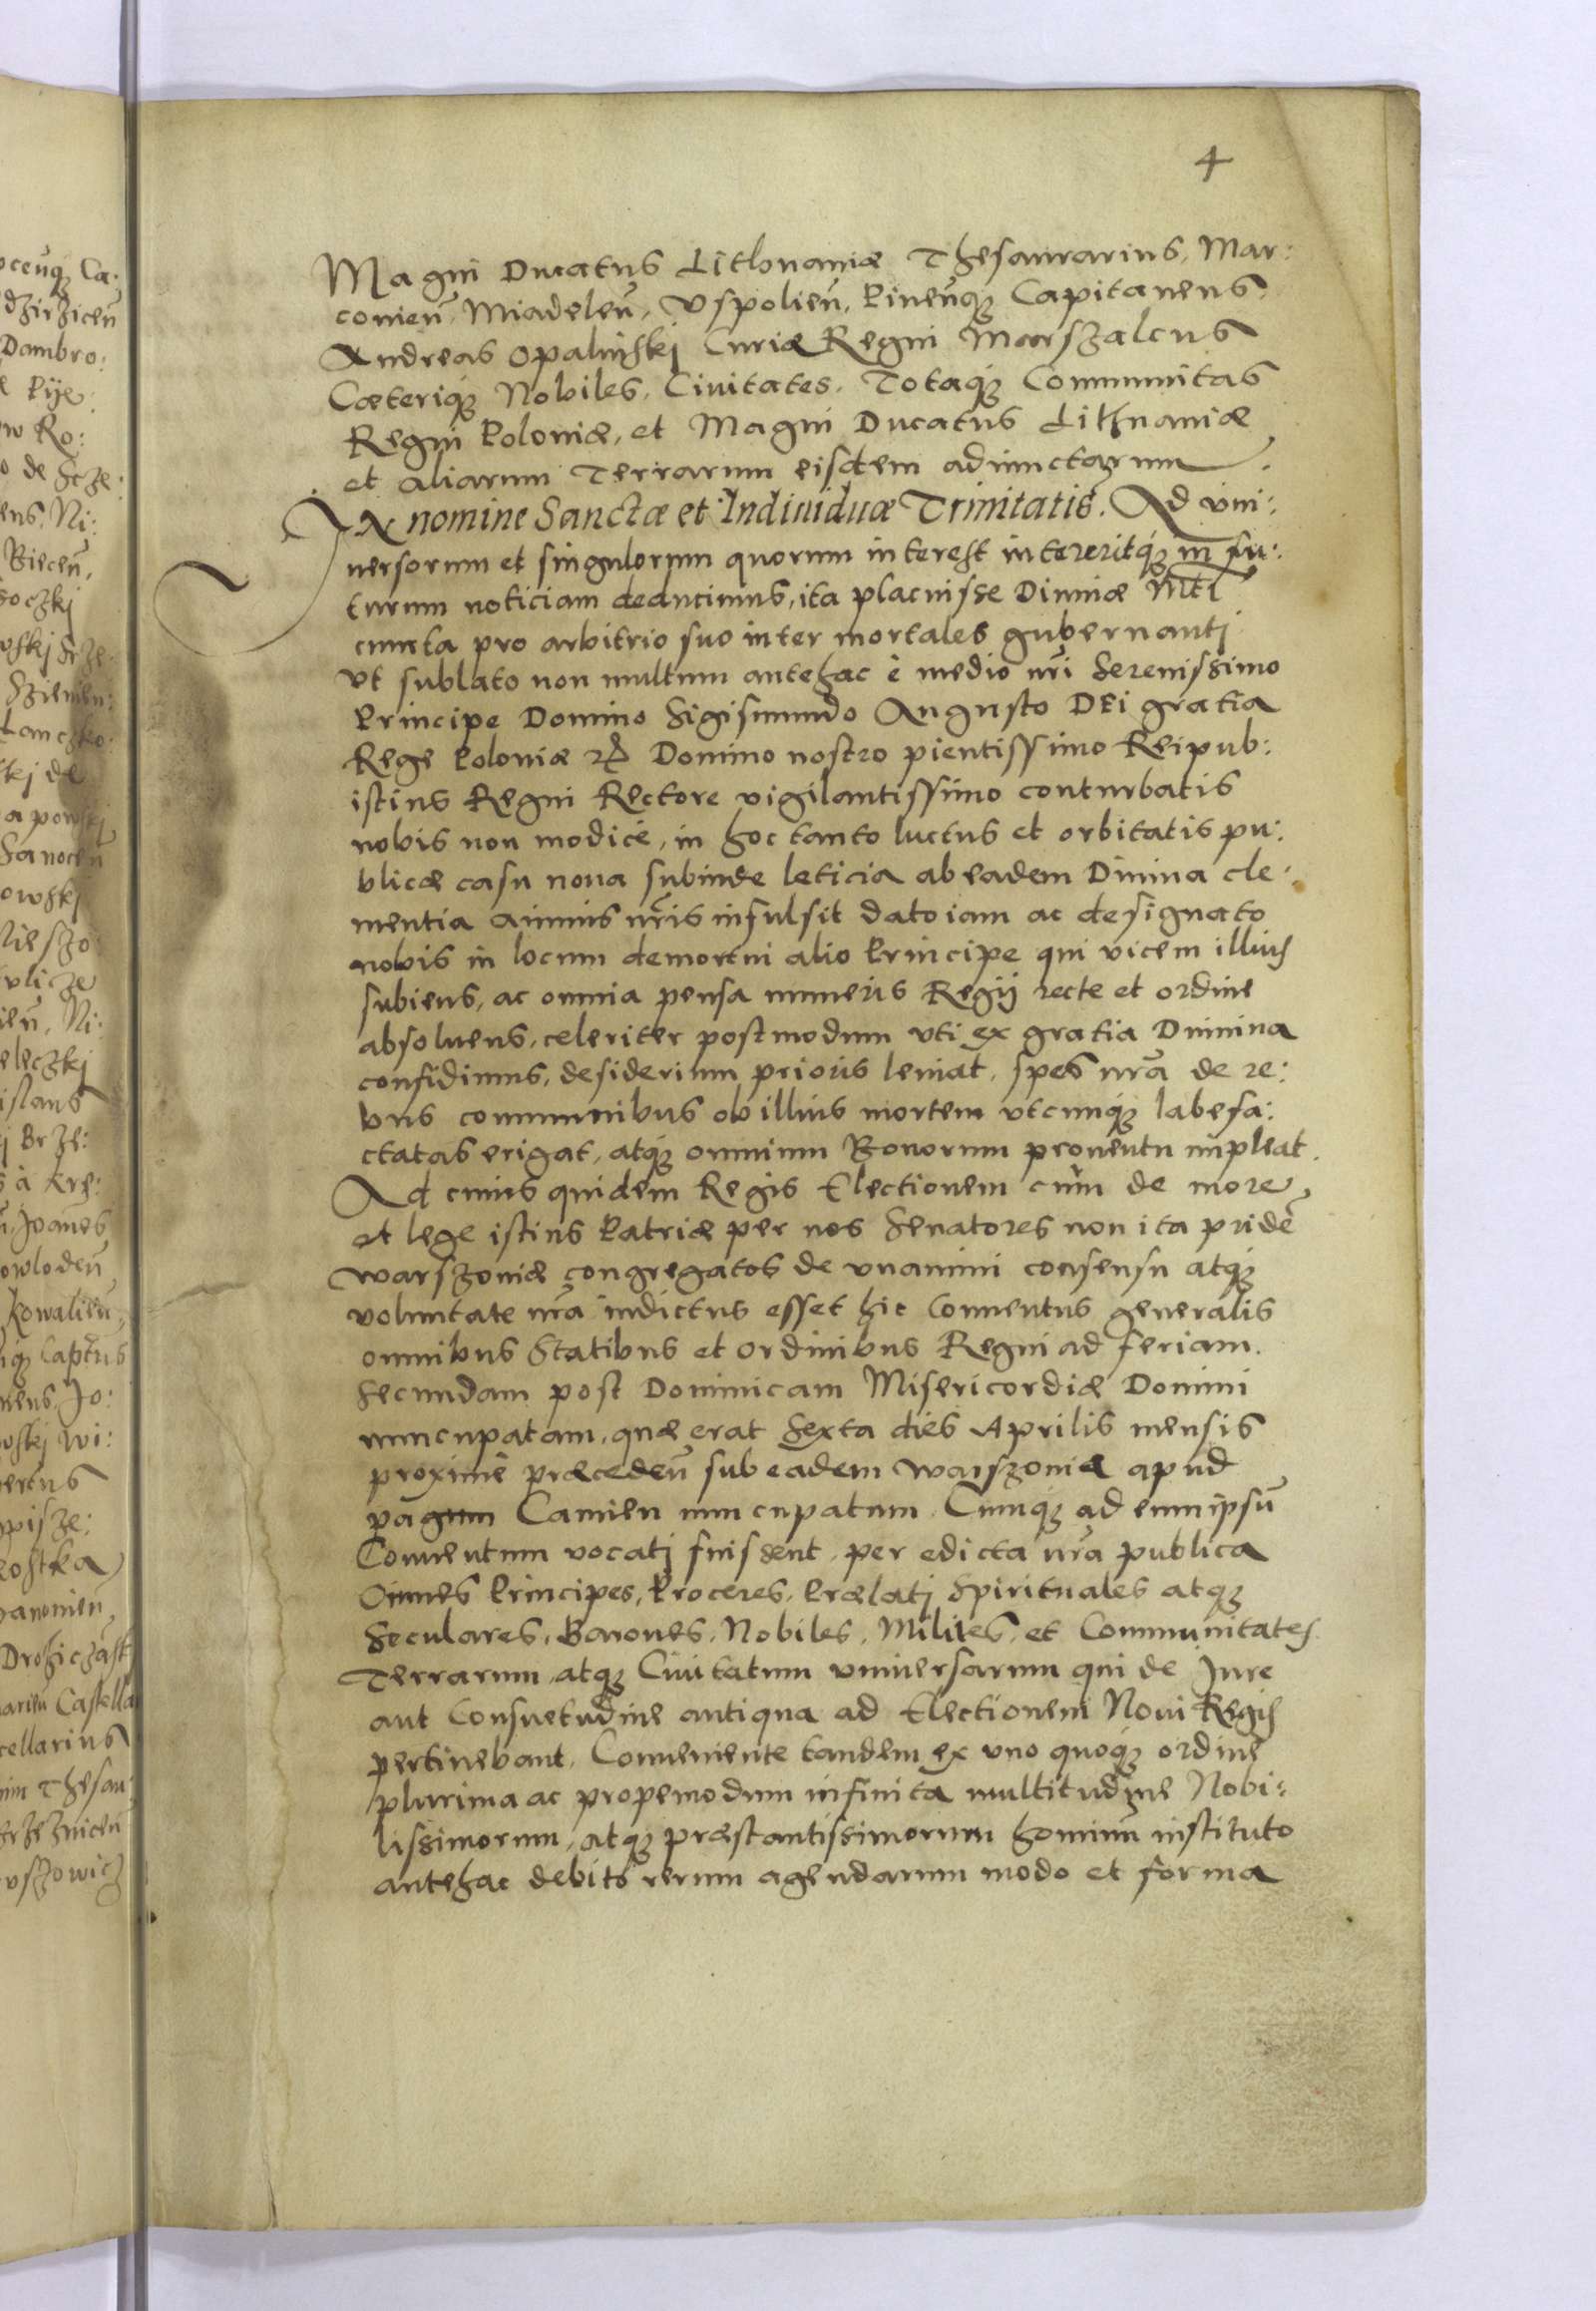 4
Magni Ducatus Lithuaniæ Thesaurarius, Mar:
conieñ, Miadeleñ, Vspolieñ, Pineñqȝ Capitaneus,
Andreas Opalinskj Curiæ Regni Marszalcus
Cæteriqȝ Nobiles, Ciuitates, Totaqȝ Communitas
Regni Poloniæ, et Magni Ducatus Lithuaniæ
et aliarum Terrarum eisdem adiunctarum.
IN nomine Sanctæ et Indiuiduæ Trinitatis. Ad vni:
uersorum et singulorum quorum interest intereritqȝ in fu:
turum noticiam deducimus, ita placuisse Diuinæ Mti
cuncta pro arbitrio suo inter mortales gubernantj
vt sublato non multum antehac è medio nr̃i Serenissimo
Principe Domino Sigismundo Augusto DEi gratia
Rege Poloniæ &c Domino nostro pientissimo Reipub:
istius Regni Rectore vigilantissimo conturbatis
nobis non modicè, in hoc tanto luctus et orbitatis pu:
blicæ casu noua subinde leticia ab eadem Diuina cle:
mentia animis nr̃is infulsit dato iam ac designato
nobis in locum demortui alio Principe qui vicem illius
subiens, ac omnia pensa muneris Regij recte et ordine
absoluens, celeriter postmodum vti ex gratia Diuina
confidimus, desiderium prioris leniat, spes nr̃a de re:
bus communibus ob illius mortem vtcunqȝ labefa:
ctatas erigat, atqȝ omnium Bonorum prouentu impleat.
Ad cuius quidem Regis Electionem cùm de more
et lege istius Patriæ per nos Senatores non ita pridẽ
Warszouiæ congregatos de vnanimi consensu atqȝ
voluntate nr̃a indictus esset hic Conuentus generalis
omnibus Statibus et ordinibus Regni ad feriam
Secundam post Dominicam Misericordiæ Domini
nuncupatam, quæ erat Sexta dies Aprilis mensis
proximè præcedeñ sub eadem Warszouia apud
pagum Camien nuncupatum, Cumqȝ ad eum ipsũ
Conuentum vocatj fuissent, per edicta nr̃a publica
Omnes Principes, Proceres, Prælatj Spirituales atqȝ
Seculares, Barones, Nobiles, Milites, et Communitates
Terrarum atqȝ Ciuitatum vniuersarum qui de Iure
aut Consuetudine antiqua ad Electionem Noui Regis
pertinebant, Conueniente tandem ex vno quoqȝ ordine
plurima ac propemodum infinita multitudine Nobi:
lissimorum, atqȝ præstantissimorum hominũ instituto
antehac debito rerum agendarum modo et forma